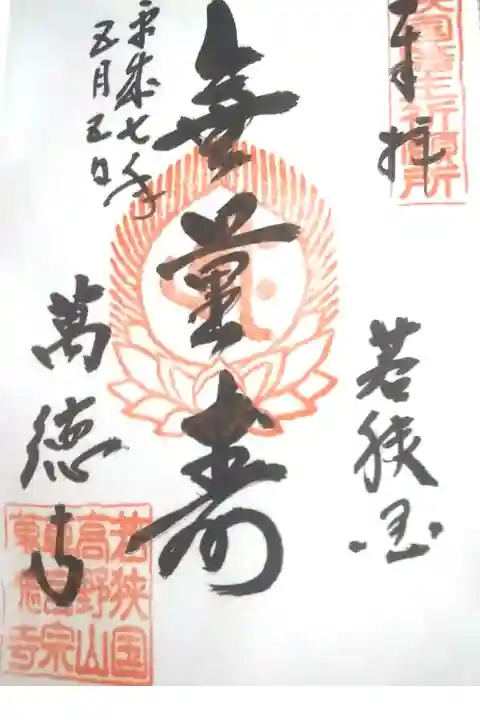 奉拝
若狭国
無量寿
平成七年
五月五日
萬徳寺
若狭国
高野山
真言宗
萬徳寺